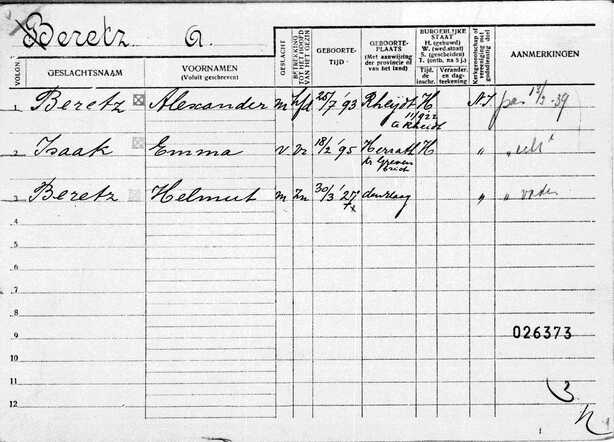 Beretz A.
VOLGN. GESLACHTSNAAM VOORNAMEN (Voluit geschreven) GESLACHT BETREKKING TOT HET HOOFD VAN HET GEZIN GEBOORTE-TIJD GEBOORTE-PLAATS (Met aanwijzing der provincie of van het land) BURGERLIJKE STAAT H. (gehuwd) W. (wed.staat) S. (gescheiden) T. (ontb. na 5 j.) Tijd. de inschr. Verander. en dag-teekening Kerkgenootschap of vereeniging met godsdienstig doel AANMERKINGEN
1 Beretz Alexander m hfd 25/7 '93 Rheijdt H N.I pas 13/2-39
11/9 22
a Rheidt
2. Isaak Emma v vr 18/2 '95 Herrath H " "
kr Greven
broich
3 Beretz Helmut m zn 30/3 '27 den Haag " " vader
4.
5.
6.
7.
8.
9.
026373
10.
11.
12.
3
1